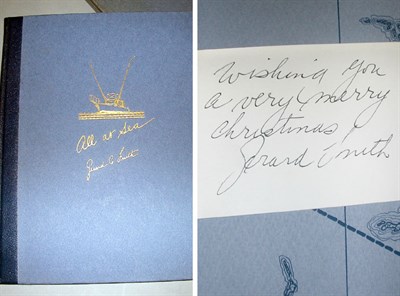 All at Sea
Gerard C. Smith
Wishing you
a very merry
christmas
Gerard Smith